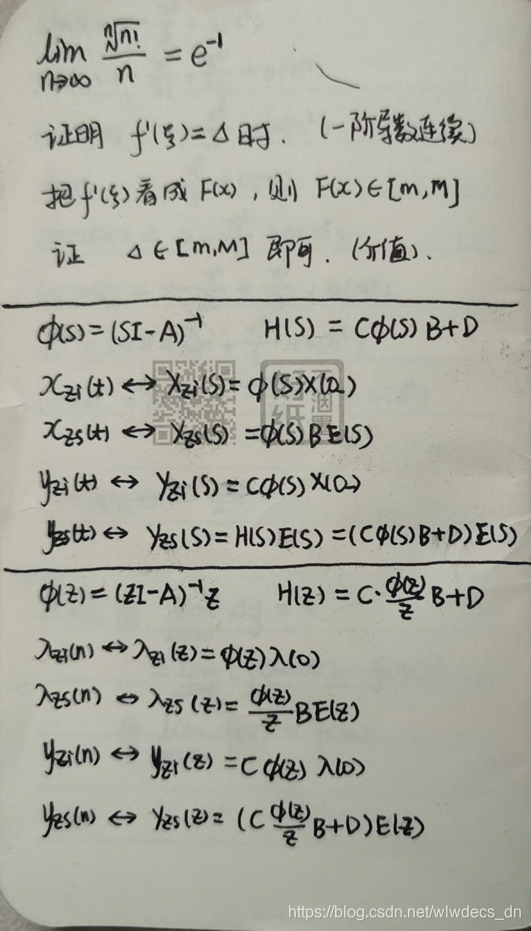 lim n→∞ ⁿ√n! / n = e⁻¹
证明 f'(ξ)=Δ时. (一阶导数连续)
把f'(ξ)看成 F(x), 则 F(x)∈[m,M]
证 Δ∈[m,M] 即可. (介值).
φ(S)=(SI-A)⁻¹ H(S) = Cφ(S)B+D
xzi(t) ↔ Xzi(S)=φ(S)X(0-)
xzs(t) ↔ Xzs(S)=φ(S)BE(S)
yzi(t) ↔ Yzi(S)=Cφ(S)X(0-)
yzs(t) ↔ Yzs(S)=H(S)E(S)=(Cφ(S)B+D)E(S)
φ(z)=(ZI-A)⁻¹z H(z) = C·φ(z)/z B+D
λzi(n) ↔ λzi(z)=φ(z)λ(0)
λzs(n) ↔ λzs(z)=φ(z)/z BE(z)
yzi(n) ↔ yzi(z)=Cφ(z)λ(0)
yzs(n) ↔ Yzs(z)=(Cφ(z)/z B+D)E(z)
https://blog.csdn.net/wlwdecs_dn